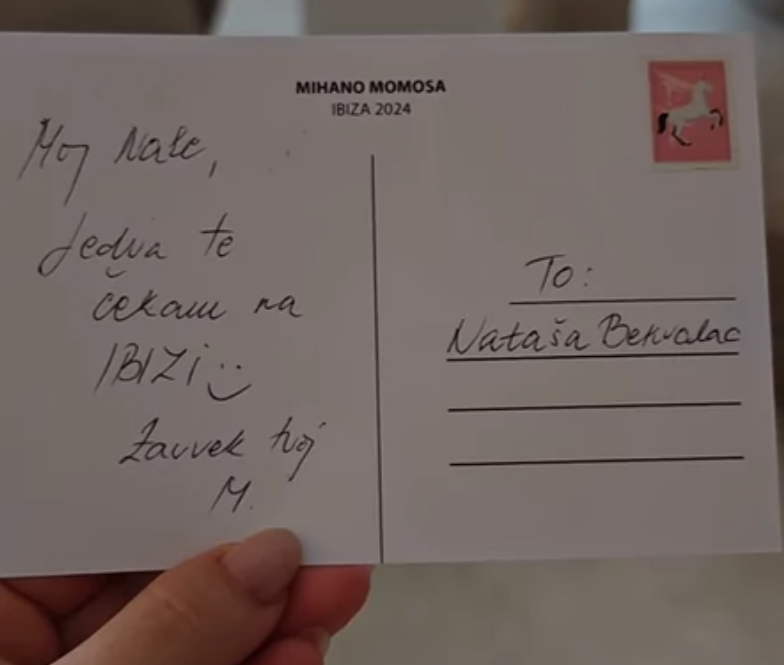 MIHANO MOMOSA
IBIZA 2024
Moj Nale,
Jedva te
čekam na
IBIZi
Zauvek tvoj
M.
To:
Nataša Bekvalac